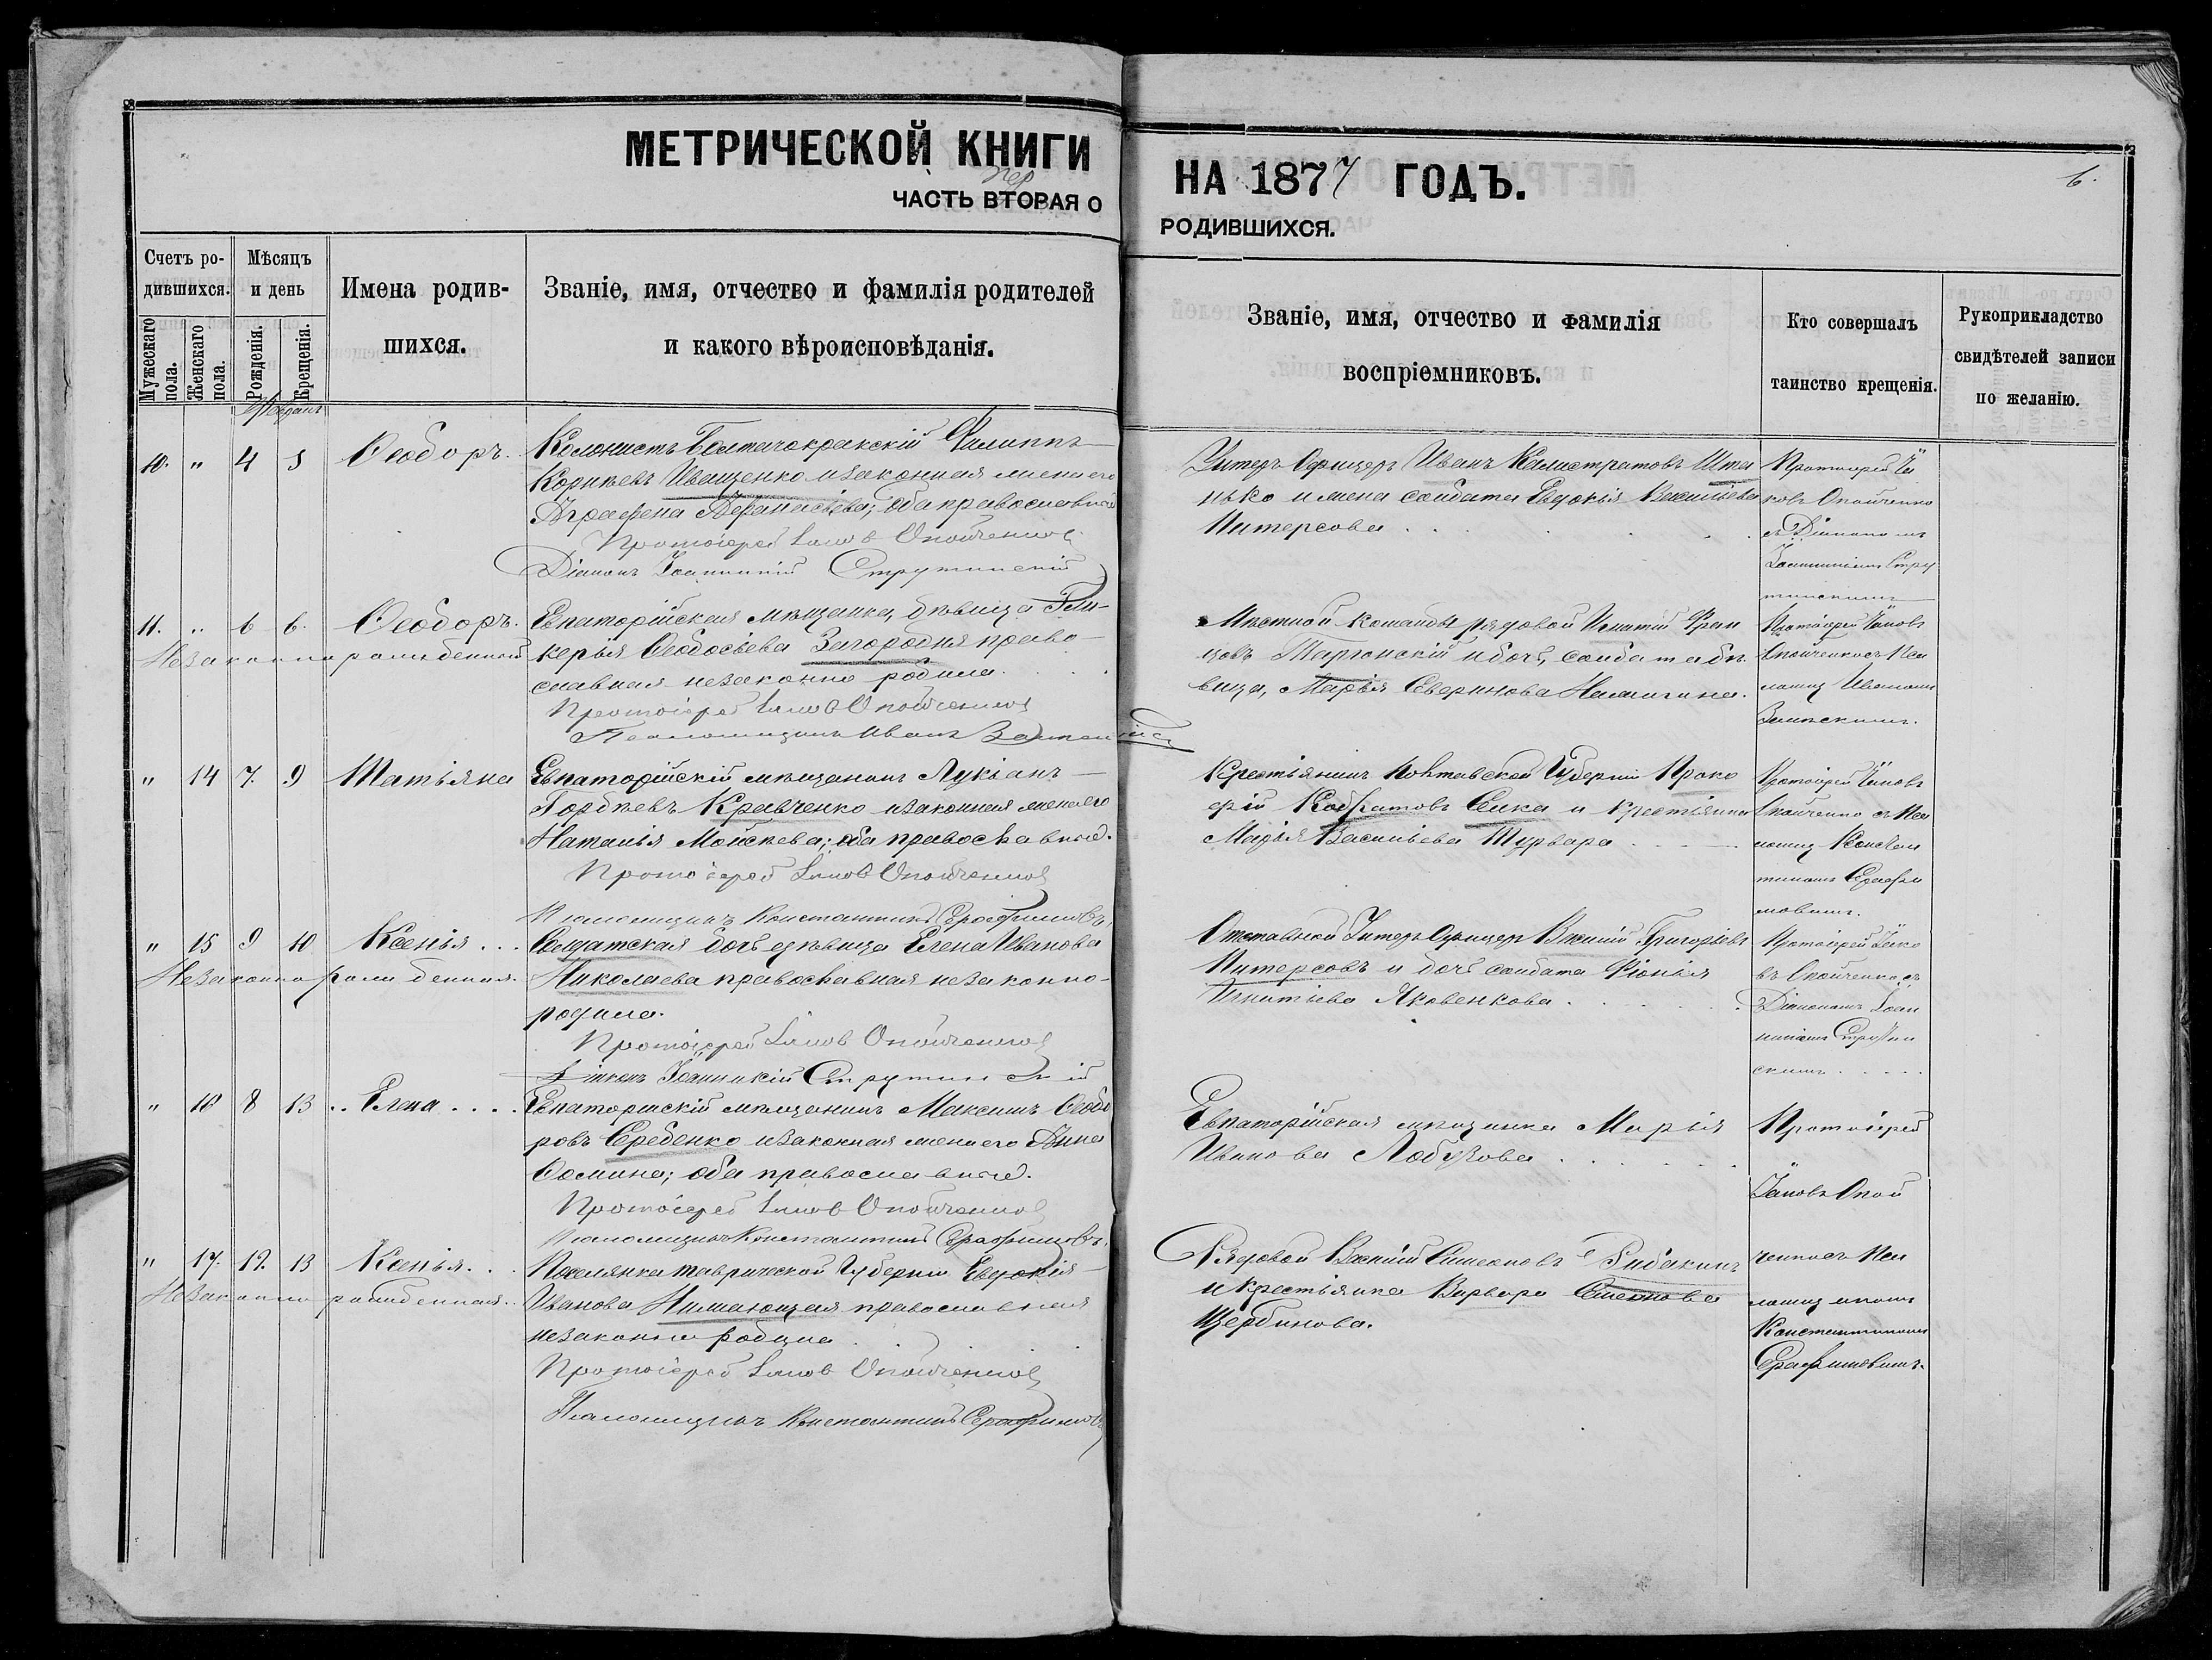 МЕТРИЧЕСКОЙ КНИГИ
НА 1877 ГОДЪ.
6.
пер
ЧАСТЬ ВТОРАЯ О
РОДИВШИХСЯ.
Счетъ ро-
дившихся.
Мужескаго пола.
Женскаго пола.
Мѣсяцъ
и день
Рожденія.
Крещенія.
Имена родив-
шихся.
Званіе, имя, отчество и фамилія родителей
и какого вѣроисповѣданія.
Званіе, имя, отчество и фамилія
воспріемниковъ.
Кто совершалъ
таинство крещенія.
Рукоприкладство
свидѣтелей записи
по желанію.
10. " 4 5 Ѳеодоръ.
Колонистъ Филиппъ
Корнѣевъ Иващенко и законная жена его
Аграфена Афанасьева; оба православные
Протоіерей Іаковъ Опойченко
Діаконъ Іоанникій Струтинскій
Унтеръ Офицеръ Иванъ Калистратовъ
и жена солдата Евдокія Васильева
Питерсова
Протоіерей Іа
ковъ Опойченко
съ Діакономъ
Іоанникіемъ Стру
тинскимъ
11. " 6 6. Ѳеодоръ.
Незаконнорожденный
Евпаторійская мѣщанка, дѣвица Гли-
керія Ѳеодосіева Загородня право-
славная незаконно родила.
Протоіерей Іаковъ Опойченко
Псаломщикъ Иванъ
Мѣстной команды рядовой Игнатій Фран
цовъ и дочь солдата дѣ-
вица, Марья Северинова
Протоіерей Іаковъ
Опойченко съ Пса
ломщ Иваномъ
" 14 7. 9 Татьяна
Евпаторійскій мѣщанинъ Лукіанъ
Гордѣевъ Кравченко и законная жена его
Наталья Мойсѣева; оба православные.
Протоіерей Іаковъ Опойченко
Псаломщикъ Константинъ Серафимовъ
Крестьянинъ Полтавской Губерніи Проко
фій Кодратовъ Сика и крестьянка
Марья Васильева
Протоіерей Іаковъ
Опойченко съ Пса
ломщ Констан
тиномъ Серафи
мовымъ.
" 15 9 10 Ксенія
Незаконнорожденная.
Солдатская дочь дѣвица Елена Иванова
Николаева православная незаконно-
родила.
Протоіерей Іаковъ Опойченко
Діаконъ Іоанникій Струтинскій
Отставной Унтеръ Офицеръ Василій Григорьевъ
Питерсовъ и дочь солдата
Игнатьева Яковенкова
Протоіерей Іако
въ Опойченко съ
Діакономъ Іоан
никіемъ Струтин
скимъ
" 16 8 13 Елена
Евпаторійскій мѣщанинъ Максимъ Ѳеодо
ровъ Серебенко и законная жена его Анна
Ѳомина; оба православные.
Протоіерей Іаковъ Опойченко
Псаломщикъ Константинъ Серафимовъ
Евпаторійская мѣщанка Марья
Иванова
Протоіерей
Іаковъ Опой
" 17. 12 13 Ксенія
Незаконнорожденная.
Поселянка Таврической Губерніи Евдокія
Иванова православная
незаконно родила
Протоіерей Іаковъ Опойченко
Псаломщикъ Константинъ Серафимовъ
Рядовой Василій Симеоновъ Рибакинъ
и крестьянка Варвара Семенова
Щербинова.
ченко съ Пса
ломщикомъ
Константиномъ
Серафимовымъ.